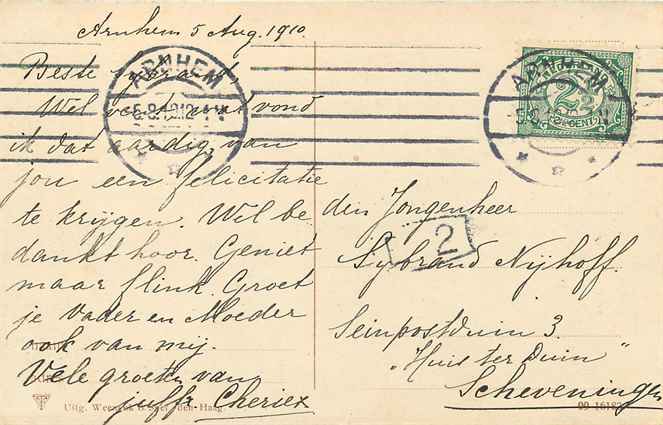 Arnhem 5 Aug. 1910.
Beste Sybrand,
Wel wat vond
ik dat aardig van
jou een felicitatie
te krijgen. Wel be
dankt hoor. Geniet
maar flink. Groet
je Vader en Moeder
ook van mij.
Vele groeten van
juffr. Cheriex
Uitg. den Haag
ARNHEM
ARNHEM
2½
CENT
den Jongenheer
2
Sybrand Nijhoff.
Seinpostduin 3.
„Huis ter Duin"
Scheveningen